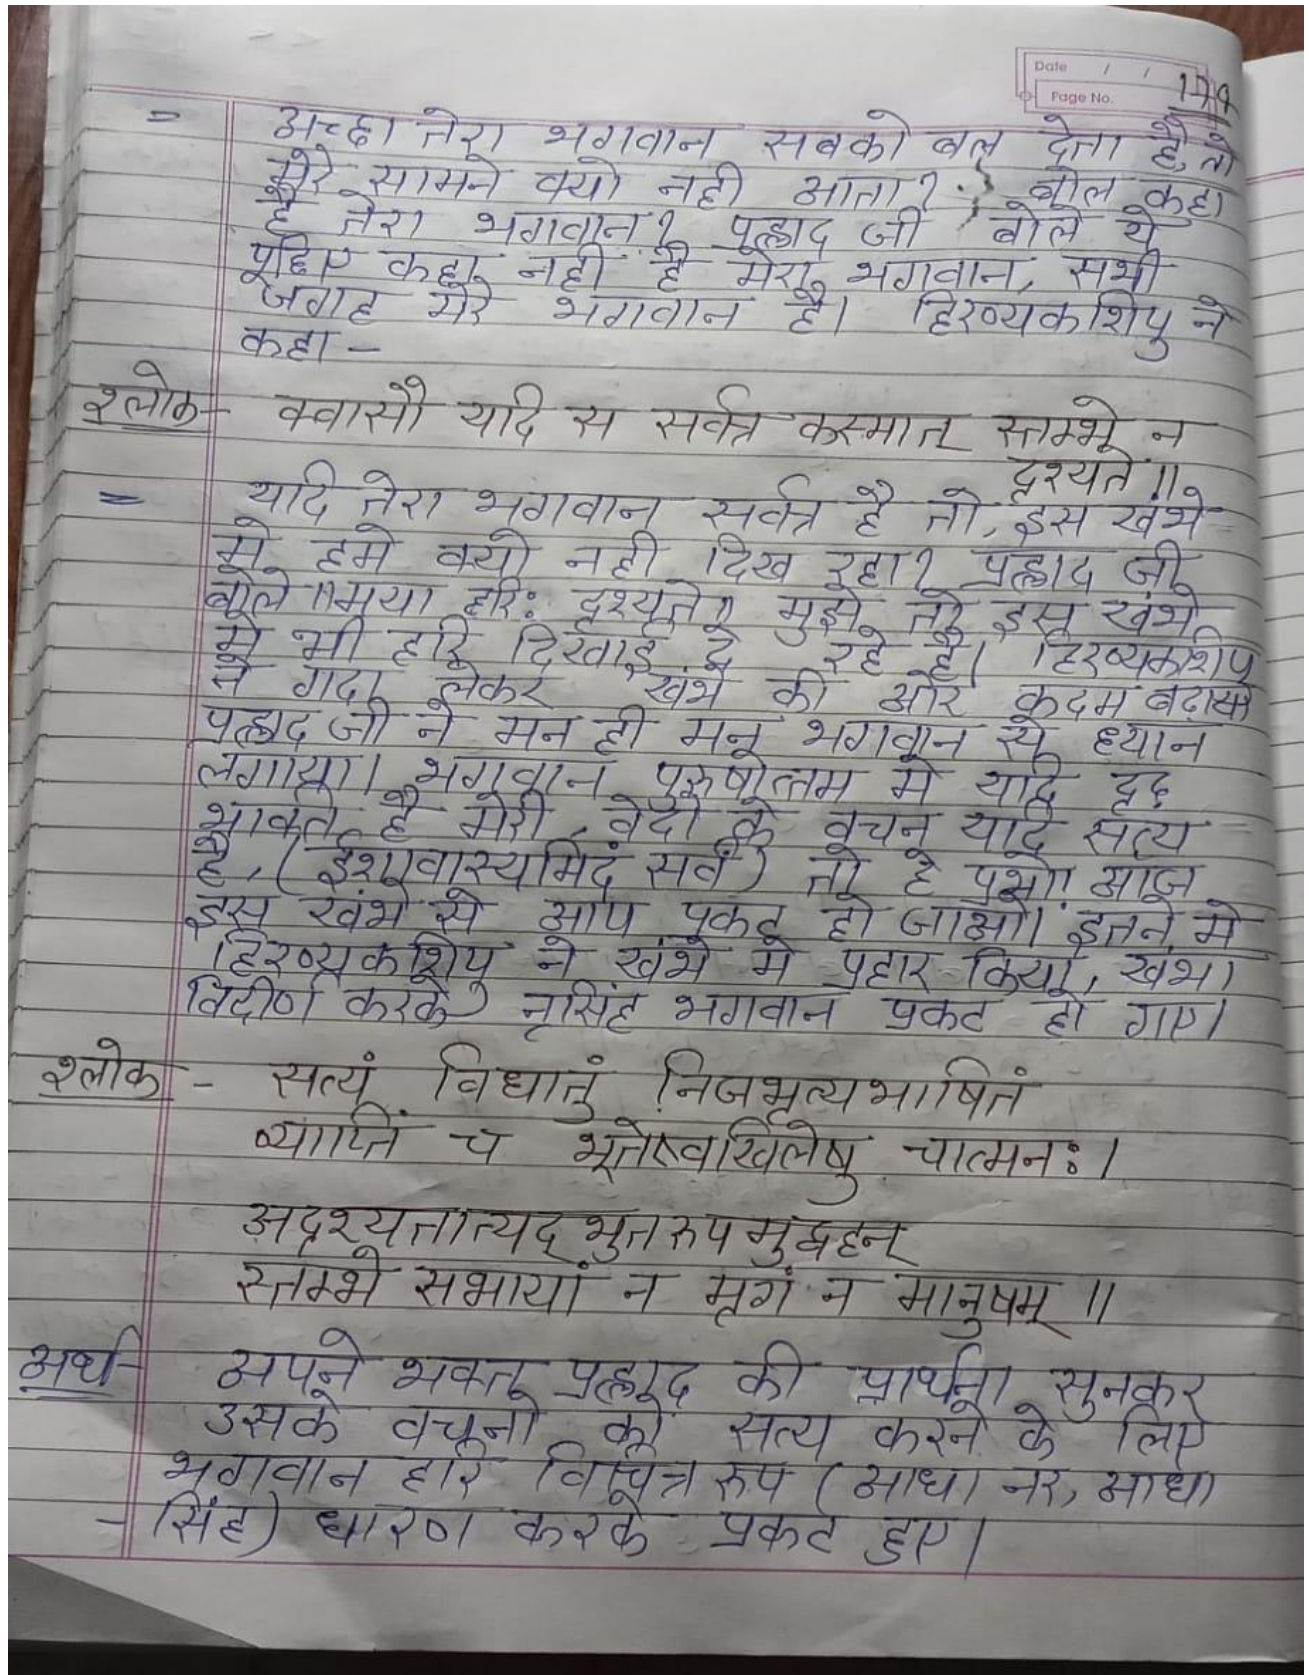 Date / /
Page No. 179
= अच्छा तेरा भगवान सबको बल देता है, तो
मेरे सामने क्यो नही आता? बोल कहा
है तेरा भगवान? प्रह्लाद जी बोले ये
पूछिए कहा नही है मेरा भगवान, सभी
जगह मेरे भगवान है। हिरण्यकशिपु ने
कहा -
श्लोक - क्वासौ यदि स सर्वत्र कस्मात् स्तम्भे न
दृश्यते॥
= यदि तेरा भगवान सर्वत्र है तो, इस खंभे
मे हमे क्यो नही दिख रहा? प्रह्लाद जी
बोले ॥मया हरि: दृश्यते॥ मुझे तो इस खंभे
मे भी हरि दिखाई दे रहे है। हिरण्यकशिपु
ने गदा लेकर खंभे की ओर कदम बढाया
प्रह्लाद जी ने मन ही मन भगवान से ध्यान
लगाया। भगवान पुरुषोत्तम मे यदि दृढ
भक्ति है मेरी, वेदो के वचन यदि सत्य
है, (ईशावास्यमिदं सर्वं) तो हे प्रभो! आज
इस खंभे से आप प्रकट हो जाओ। इतने मे
हिरण्यकशिपु ने खंभे मे प्रहार किया, खंभा
विदीर्ण करके नृसिंह भगवान प्रकट हो गए।
श्लोक - सत्यं विधातुं निजभृत्यभाषितं
व्याप्तिं च भूतेष्वखिलेषु चात्मन:।
अदृश्यतात्यद्भुतरुपमुद्वहन्
स्तम्भे सभायां न मृगं न मानुषम्॥
अर्थ - अपने भक्त प्रह्लाद की प्रार्थना सुनकर
उसके वचनो को सत्य करने के लिए
भगवान हरि विचित्र रुप (आधा नर, आधा
- सिंह) धारण करके प्रकट हुए।